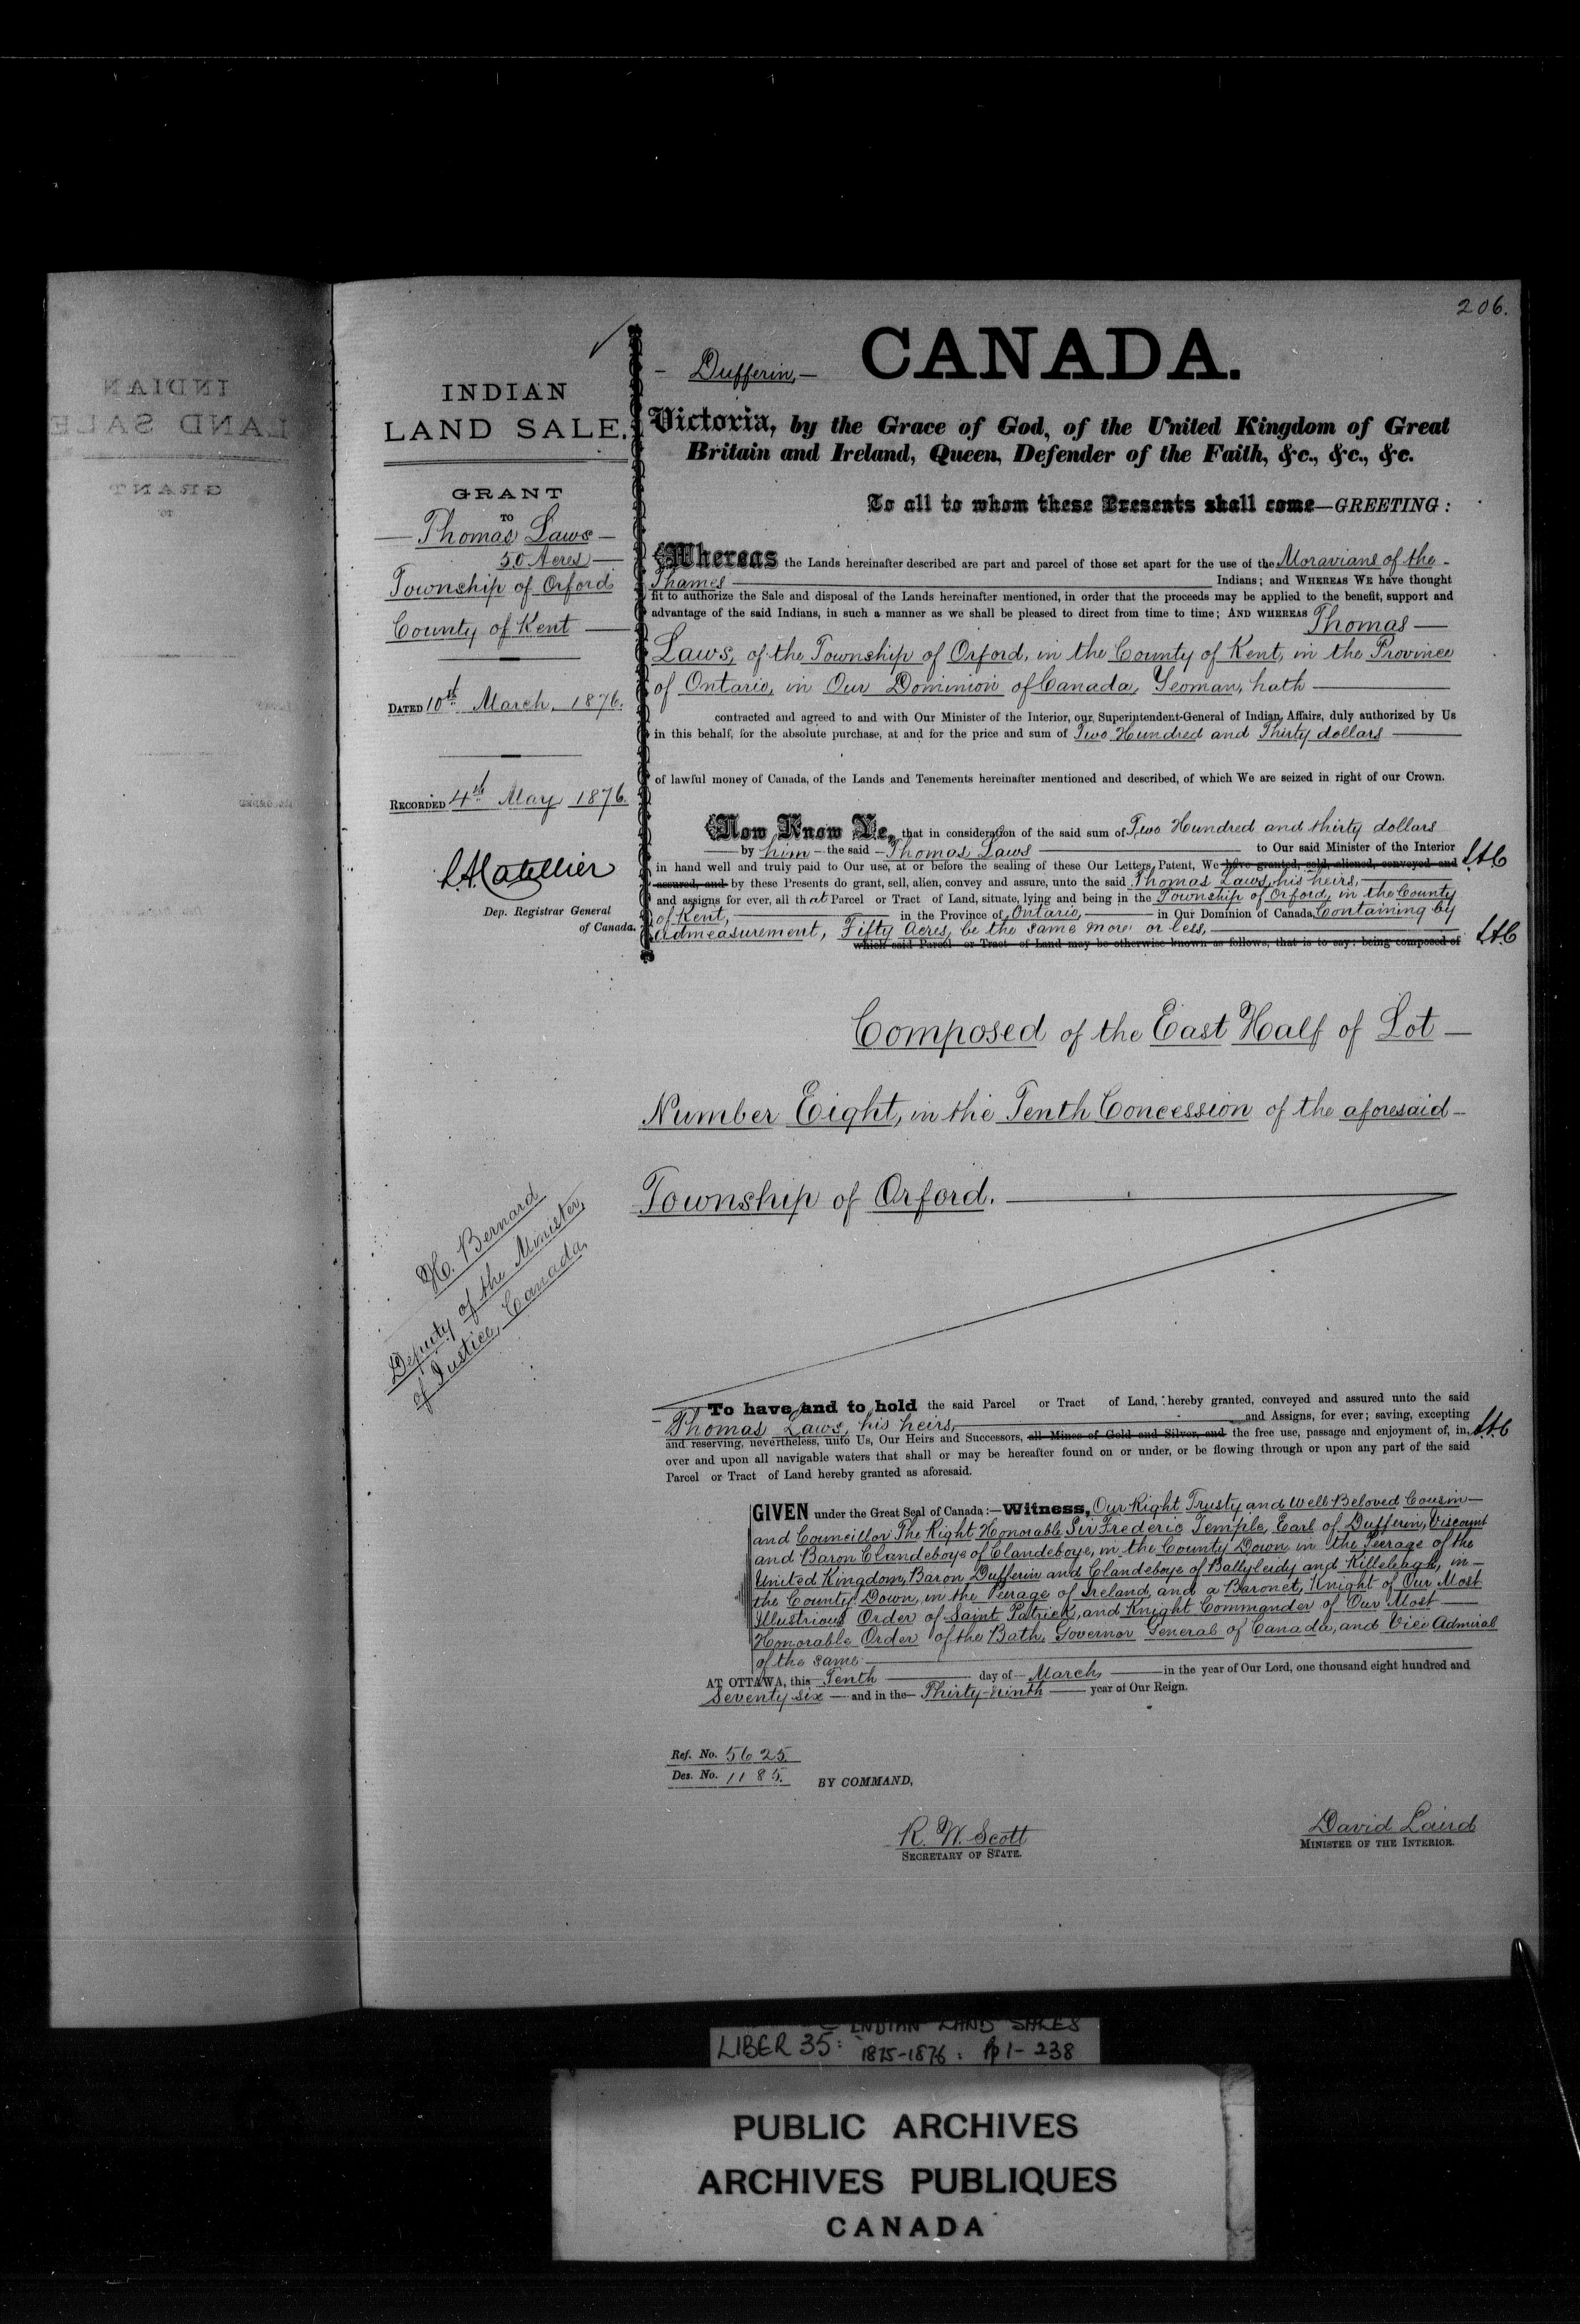 206.
INDIAN
LAND SALE.
GRANT
TO
Thomas Laws
50 Acres
Township of Orford
County of Kent
DATED 10th March, 1876.
RECORDED 4th May 1876.
Dep. Registrar General
of Canada.
H. Bernard
Deputy of the Minister
of Justice, Canada.
Dufferin,
CANADA.
Victoria, by the Grace of God, of the United Kingdom of Great
Britain and Ireland, Queen, Defender of the Faith, &c., &c., &c.
To all to whom these Presents shall come—GREETING:
Whereas the Lands hereinafter described are part and parcel of those set apart for the use of the Moravians of the
Thames Indians; and WHEREAS WE have thought
fit to authorize the Sale and disposal of the Lands hereinafter mentioned, in order that the proceeds may be applied to the benefit, support and
advantage of the said Indians, in such a manner as we shall be pleased to direct from time to time; AND WHEREAS Thomas
Laws, of the Township of Orford, in the County of Kent, in the Province
of Ontario, in Our Dominion of Canada, Yeoman, hath
contracted and agreed to and with Our Minister of the Interior, our Superintendent-General of Indian Affairs, duly authorized by Us
in this behalf, for the absolute purchase, at and for the price and sum of Two Hundred and Thirty dollars
of lawful money of Canada, of the Lands and Tenements hereinafter mentioned and described, of which We are seized in right of our Crown.
Now Know Ye, that in consideration of the said sum of Two Hundred and thirty dollars
by him the said Thomas Laws to Our said Minister of the Interior
in hand well and truly paid to Our use, at or before the sealing of these Our Letters Patent, We have granted, sold, aliened, conveyed and
assured, and by these Presents do grant, sell, alien, convey and assure, unto the said Thomas Laws, his heirs,
and assigns for ever, all that Parcel or Tract of Land, situate, lying and being in the Township of Orford, in the County
of Kent, in the Province of Ontario, in Our Dominion of Canada, Containing by
admeasurement, Fifty Acres, be the same more or less,
which said Parcel or Tract of Land may be otherwise known as follows, that is to say: being composed of
Composed of the East Half of Lot
Number Eight, in the Tenth Concession of the aforesaid
Township of Orford.
To have and to hold the said Parcel or Tract of Land, hereby granted, conveyed and assured unto the said
Thomas Laws, his heirs, and Assigns, for ever; saving, excepting
and reserving, nevertheless, unto Us, Our Heirs and Successors, all Mines of Gold and Silver, and the free use, passage and enjoyment of, in,
over and upon all navigable waters that shall or may be hereafter found on or under, or be flowing through or upon any part of the said
Parcel or Tract of Land hereby granted as aforesaid.
GIVEN under the Great Seal of Canada:—Witness, Our Right Trusty and Well Beloved Cousin
and Councillor The Right Honorable Sir Frederic Temple, Earl of Dufferin, Viscount
and Baron Clandeboye of Clandeboye, in the County Down in the Peerage of the
United Kingdom, Baron Dufferin and Clandeboye of Ballyleidy and Killeleagh, in
the County Down, in the Peerage of Ireland, and a Baronet, Knight of Our Most
Illustrious Order of Saint Patrick, and Knight Commander of Our Most
Honorable Order of the Bath, Governor General of Canada, and Vice Admiral
of the same
AT OTTAWA, this Tenth day of March in the year of Our Lord, one thousand eight hundred and
Seventy six and in the Thirty-ninth year of Our Reign.
Ref. No. 5625.
Des. No. 1185.
BY COMMAND,
R. W. Scott
SECRETARY OF STATE.
David Laird
MINISTER OF THE INTERIOR.
LIBER 35: INDIAN LAND SALES
1875-1876: pp 1-238
PUBLIC ARCHIVES
ARCHIVES PUBLIQUES
CANADA